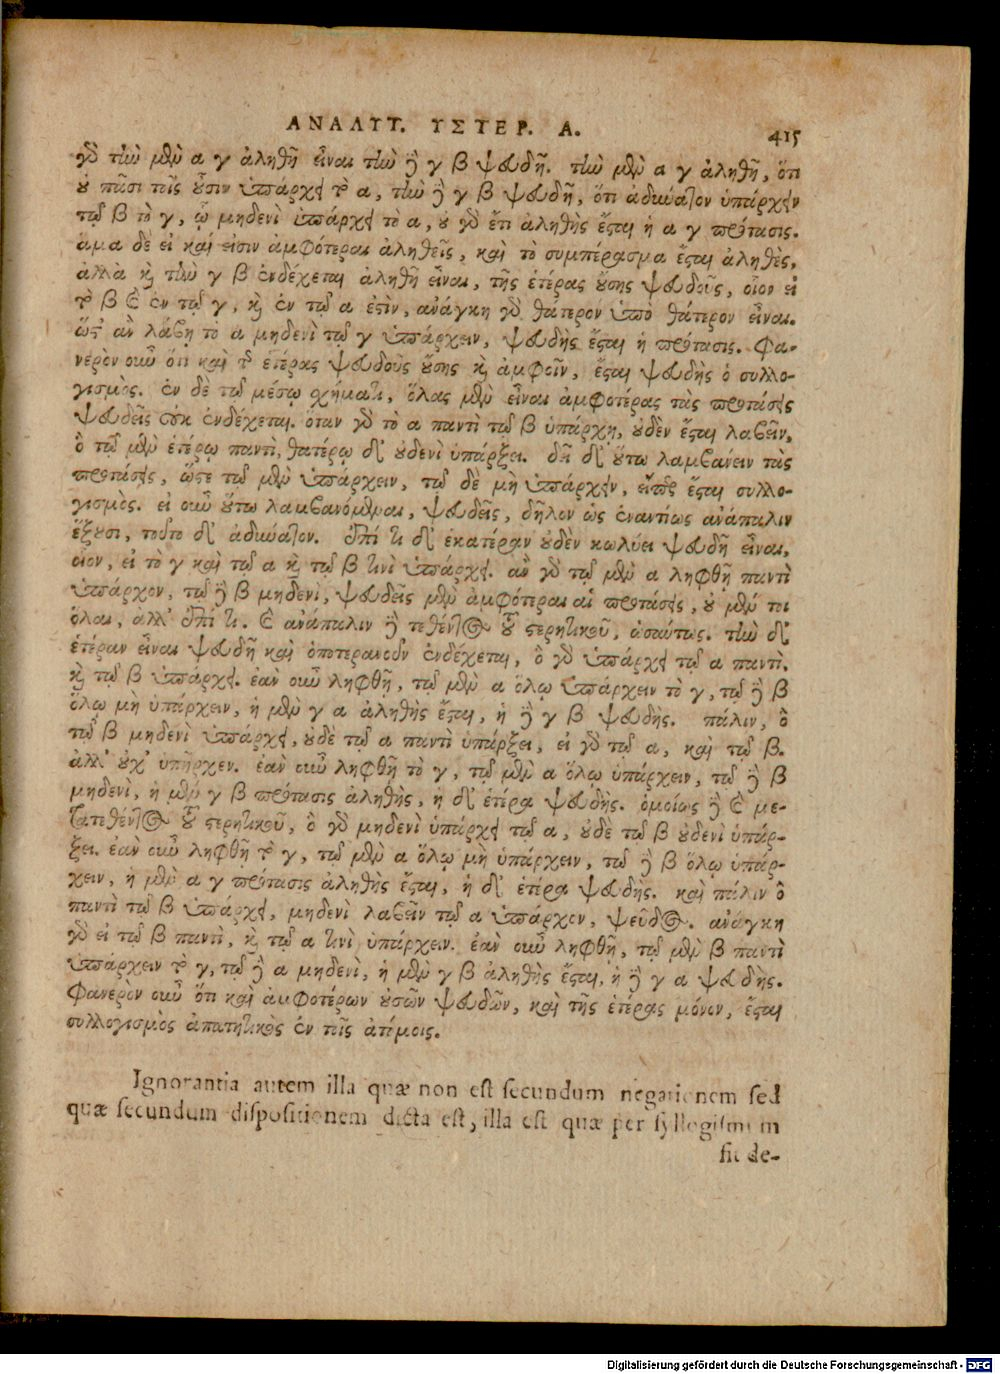 ΑΝΑΛΥΤ. ΥΣΤΕΡ. Α. 415
γὸ τὴν μὲν α γ ἀληθῆ εἶναι τὴν δὲ γ β ψευδῆ. τὴν μὲν α γ ἀληθῆ, ὅτι
ȣ πᾶσι τοῖς ȣ̓͂σιν ὑπάρχει τὸ α, τὴν δὲ γ β ψευδῆ, ὅτι ἀδύνατον ὑπάρχειν
τῷ β τὸ γ, ᾧ μηδενὶ ὑπάρχει τὸ α, ȣ γὸ ἔτι ἀληθὴς ἔςται ἡ α γ πρότασις.
ἅμα δὲ εἰ καί εἰσιν ἀμφότεραι ἀληθεῖς, καὶ τὸ συμπέρασμα ἔςται ἀληθὲς,
ἀλλὰ κ τὴν γ β ἐνδέχεται ἀληθῆ εἶναι, τῆς ἑτέρας ȣσης ψευδοῦς, οἷον εἰ
τὸ β ϵ ἐν τῷ γ, κ ἐν τῷ α ἐςὶν, ἀνάγκη γὸ θάτερον ὑπὸ θάτερον εἶναι.
ὥς ἂν λάβῃ τὸ α μηδενὶ τῷ γ ὑπάρχειν, ψευδὴς ἔςται ἡ πρότασις. Φα-
νερὸν οὖν ὅτι καὶ τ ἑτέρας ψευδοῦς ȣσης κ ἀμφοῖν, ἔςται ψευδὴς ὁ συλλο-
γισμὸς. ἐν δὲ τῷ μέσῳ σχήματι, ὅλας μὲν εἶναι ἀμφοτέρας τὰς προτάσεις
ψευδεῖς οὐκ ἐνδέχεται. ὅταν γὸ τὸ α παντὶ τῷ β ὑπάρχῃ, ȣδὲν ἔςται λαβεῖν,
ὃ τῷ μὲν ἑτέρῳ παντὶ, θατέρῳ δ' ȣδενὶ ὑπάρξει. δεῖ δ' ȣτω λαμβάνειν τὰς
προτάσεις, ὥςε τῷ μὲν ὑπάρχειν, τῷ δὲ μὴ ὑπάρχειν, εἴπερ ἔςται συλλο-
γισμὸς. εἰ οὖν ȣτω λαμβανόμεναι, ψευδεῖς, δῆλον ὡς ἐναντίως ἀνάπαλιν
ἕξȣσι, τοῦτο δ' ἀδύνατον. ἐπί τι δ' ἑκατέραν ȣδὲν κωλύει ψευδῆ εἶναι,
οἷον, εἰ τὸ γ καὶ τῷ α κ τῷ β τινὶ ὑπάρχει. ἂν γὸ τῷ μὲν α ληφθῇ παντὶ
ὑπάρχον, τῷ δὲ β μηδενὶ, ψευδεῖς μὲν ἀμφότεραι αἱ προτάσεις, ȣ μέν τοι
ὅλαι, ἀλλ' ἐπί τι. ϵ ἀνάπαλιν δὲ τεθέντος τοῦ ςερητικοῦ, ὡσαύτως. τὴν δ'
ἑτέραν εἶναι ψευδῆ καὶ ὁποτερανοῦν ἐνδέχεται, ὃ γὸ ὑπάρχει τῷ α παντὶ,
κ τῷ β ὑπάρχει. ἐὰν οὖν ληφθῇ, τῷ μὲν α ὅλῳ ὑπάρχειν τὸ γ, τῷ δὲ β
ὅλῳ μὴ ὑπάρχειν, ἡ μὲν γ α ἀληθὴς ἔςται, ἡ δὲ γ β ψευδὴς. πάλιν, ὃ
τῷ β μηδενὶ ὑπάρχει, ȣδὲ τῷ α παντὶ ὑπάρξει, εἰ γὸ τῷ α, καὶ τῷ β.
ἀλλ' ȣχ' ὑπῆρχεν. ἐὰν οὖν ληφθῇ τὸ γ, τῷ μὲν α ὅλῳ ὑπάρχειν, τῷ δὲ β
μηδενὶ, ἡ μὲν γ β πρότασις ἀληθὴς, ἡ δ' ἑτέρα ψευδὴς. ὁμοίως δὲ ϵ με-
τατεθέντος τοῦ ςερητικοῦ, ὃ γὸ μηδενὶ ὑπάρχει τῷ α, ȣδὲ τῷ β ȣδενὶ ὑπάρ-
ξει. ἐὰν οὖν ληφθῇ τὸ γ, τῷ μὲν α ὅλῳ μὴ ὑπάρχειν, τῷ δὲ β ὅλῳ ὑπάρ-
χειν, ἡ μὲν α γ πρότασις ἀληθὴς ἔςται, ἡ δ' ἑτέρα ψευδὴς. καὶ πάλιν ὃ
παντὶ τῷ β ὑπάρχει, μηδενὶ λαβεῖν τῷ α ὑπάρχον, ψεῦδος. ἀνάγκη
γὸ εἰ τῷ β παντὶ, κ τῷ α τινὶ ὑπάρχειν. ἐὰν οὖν ληφθῇ, τῷ μὲν β παντὶ
ὑπάρχειν τὸ γ, τῷ δὲ α μηδενὶ, ἡ μὲν γ β ἀληθὴς ἔςται, ἡ δὲ γ α ψευδὴς.
Φανερὸν οὖν ὅτι καὶ ἀμφοτέρων ȣσῶν ψευδῶν, καὶ τῆς ἑτέρας μόνον, ἔςται
συλλογισμὸς ἀπατητικὸς ἐν τοῖς ἀτόμοις.
Ignorantia autem illa quæ non est secundum negationem sed
quæ secundum dispositionem dicta est, illa est quæ per syllogismum
fit de-
Digitalisierung gefördert durch die Deutsche Forschungsgemeinschaft - DFG